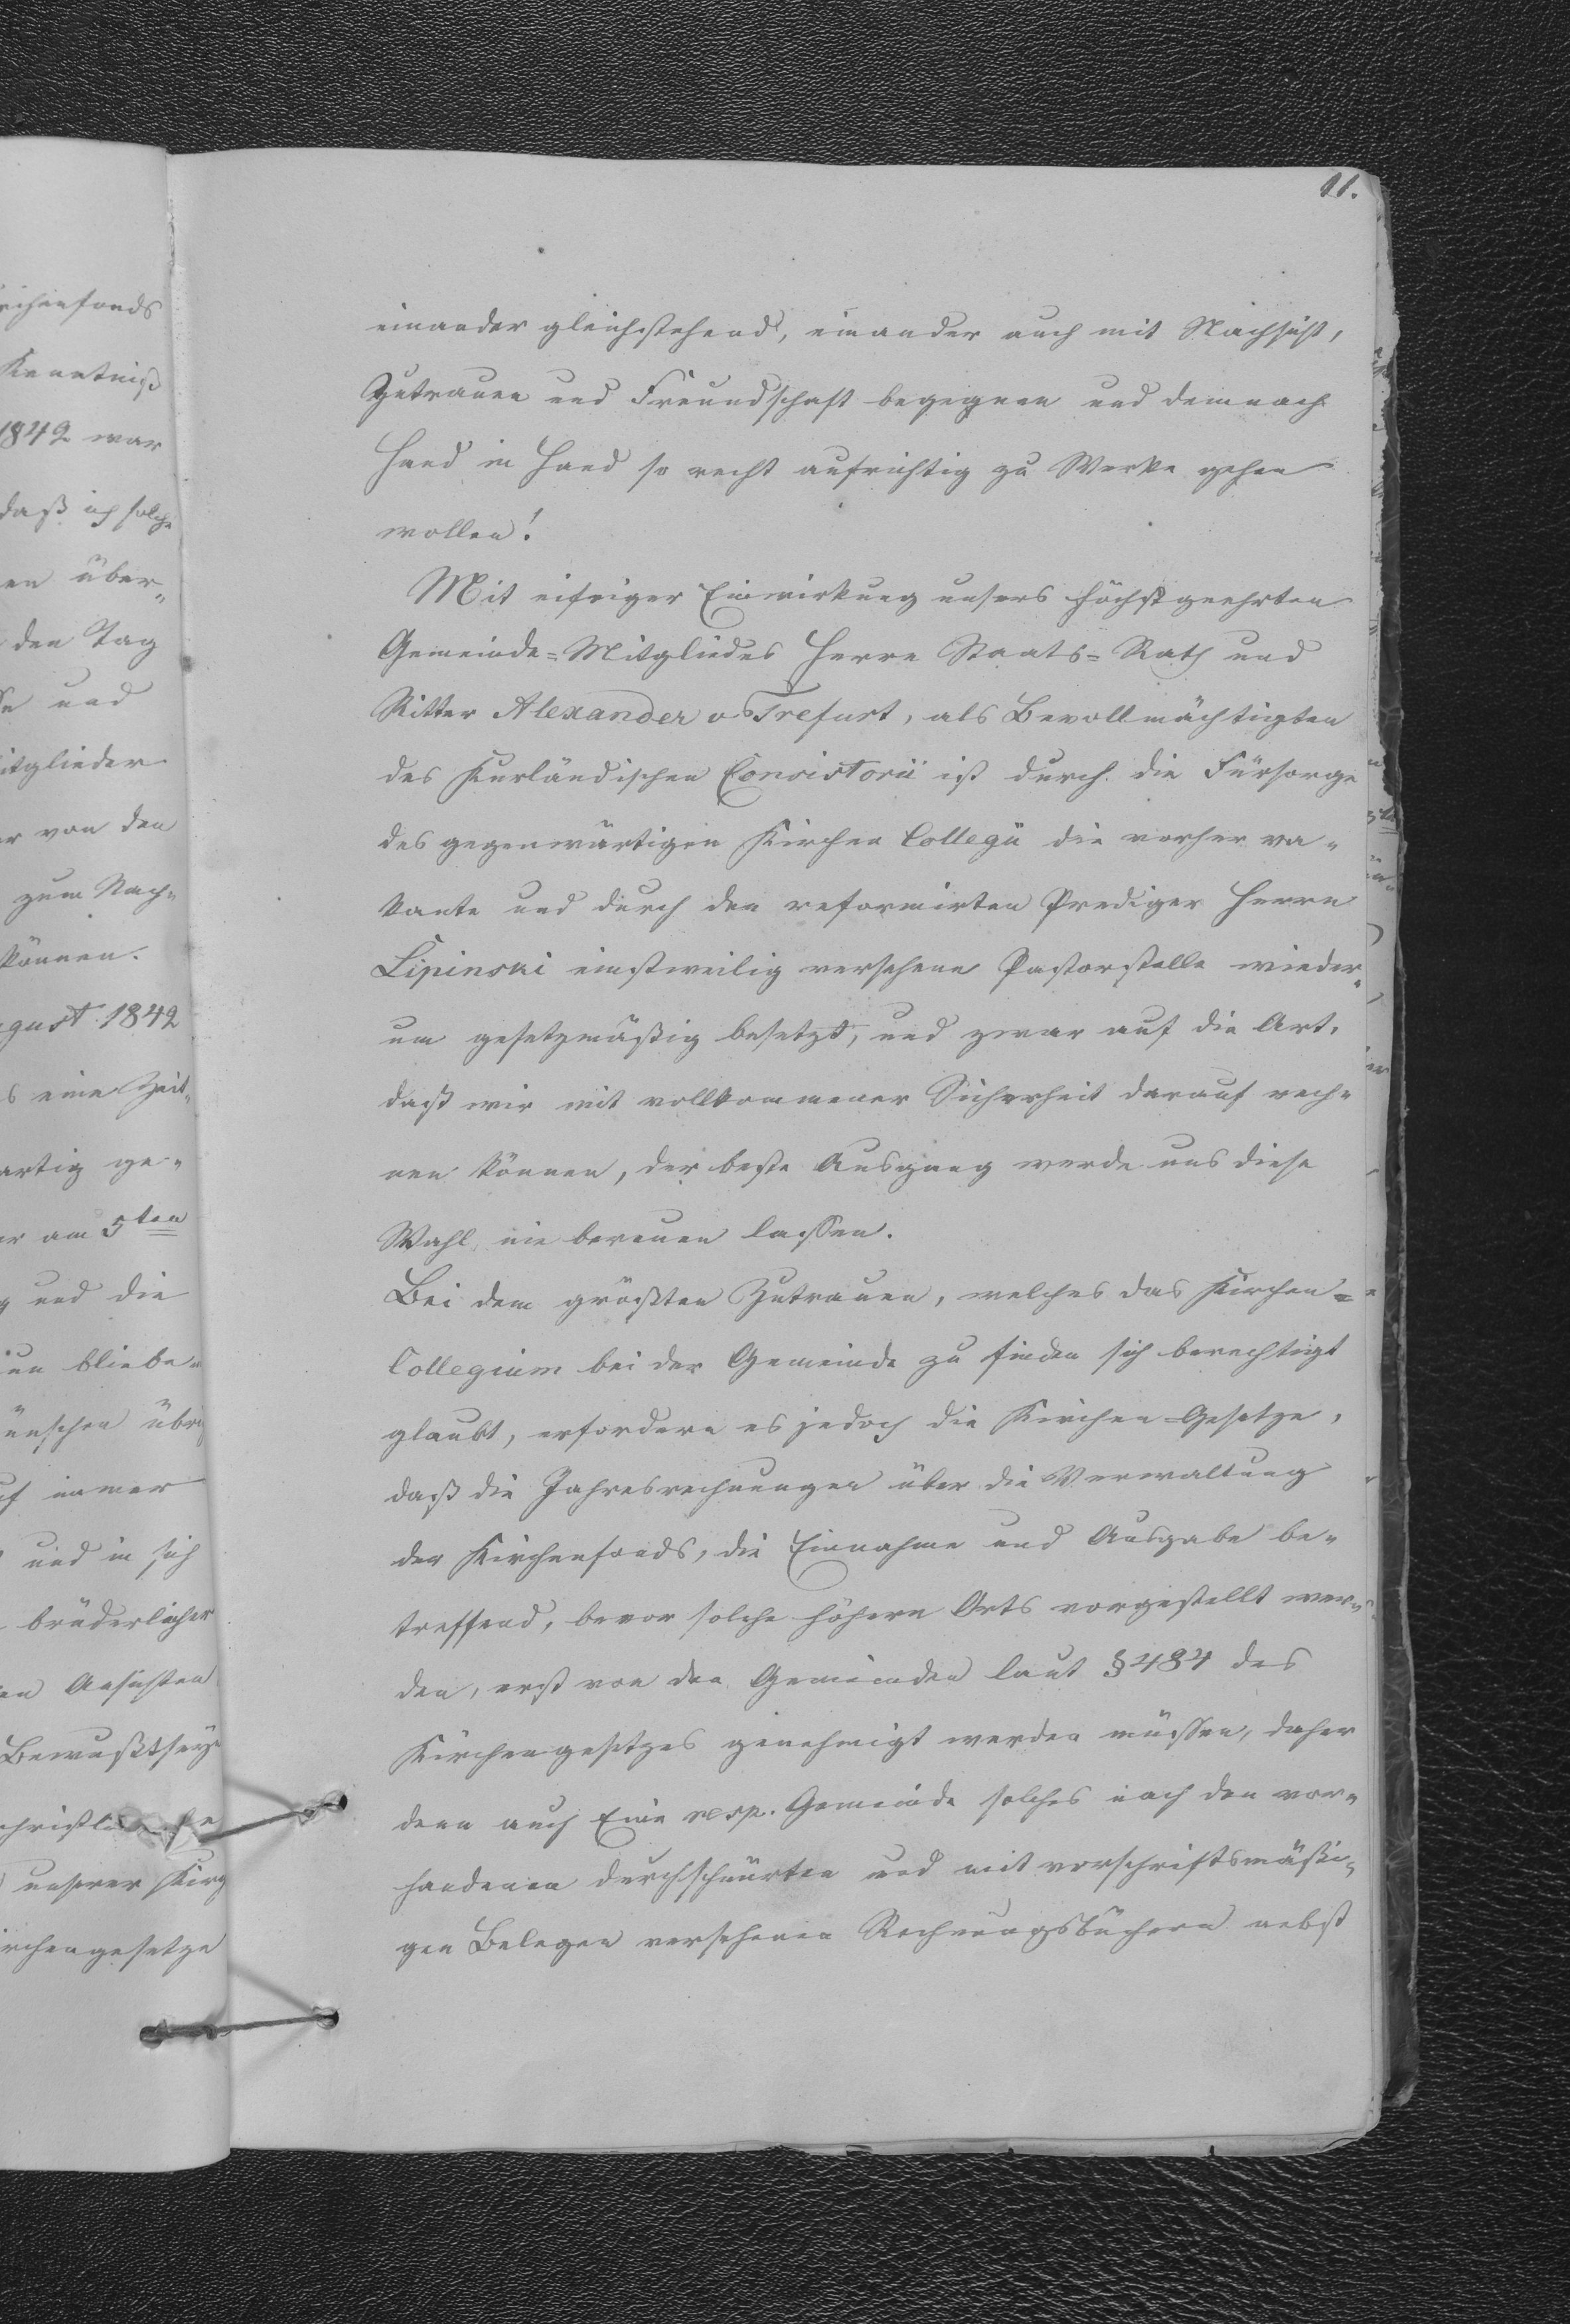 11.
einander gleichstehend, einander auch mit Nachsicht,
Zutrauen und Freundschaft begegnen und demnach
Hand in Hand so recht aufrichtig zu Werke gehen
wollen!
Mit eifriger Einwirkung unsers höchstgeehrten
Gemeinde-Mitgliedes Herrn Staats-Rath und
Ritter Alexander v. Trefurt, als Bevollmächtigten
des Kurländischen Consistorii ist durch die Fürsorge
des gegenwärtigen Kirchen Collegii die vorher va-
kante und durch den reformirten Prediger Herrn
Lipinski einstweilig versehene Pastorstelle wieder-
um gesetzmäßig besetzt, und zwar auf die Art,
daß wir mit vollkommener Sicherheit darauf rech-
nen können, der beste Ausgang werde uns diese
Wahl nie bereuen lassen.
Bei dem größten Zutrauen, welches das Kirchen-
Collegium bei der Gemeinde zu finden sich berechtigt
glaubt, erfordern es jedoch die Kirchen-Gesetze,
daß die Jahresrechnungen über die Verwaltung
der Kirchenfonds, die Einnahme und Ausgabe be-
treffend, bevor solche höhern Orts vorgestellt wer-
den, erst von den Gemeinden laut § 484 des
Kirchengesetzes genehmigt werden müssen, daher
denn auch Eine resp. Gemeinde solches nach den vor-
handenen durchschnürten und mit vorschriftsmäßi-
gen Belegen versehenen Rechnungsbüchern nebst
rchenfonds
Kenntniß
1842 war
daß ich solche
en über-
den Tag
se und
itglieder
er von den
zum Nach-
können.
gust 1842
s eine Zeit-
artig ge-
er am 5ten
und die
bliebe
ünschen übrig
uf immer
und in sich
brüderlicher
en Ansichten
Bewußtsey
unserer Kirch
irchengesetze